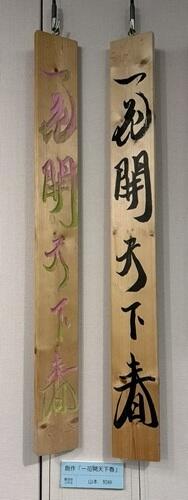 一花開天下春
一花開天下春
創作「一花開天下春」
山本